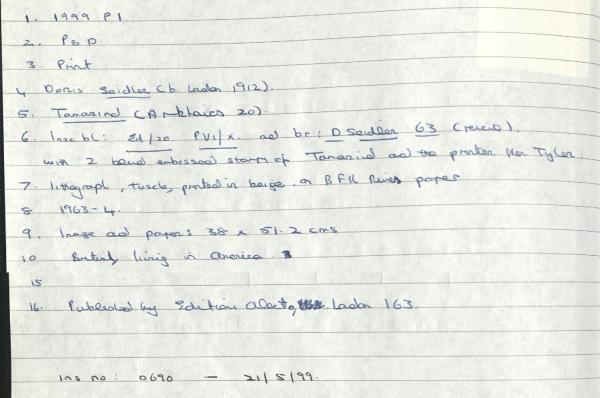 1. 1999 P1
2. P & D
3 Print
4 Doris Seidler (b. London 1912).
5. Tamarind ( 20)
6. Insc bl: Ed/20 PV1/x. and br: D Seidler 63 (reverse).
with 2 blind embossed stamps of Tamarind and the printer Ken Tyler.
7. lithograph, tusche, printed in beige, on BFK Rives paper
8 1963-4.
9. Image and paper: 38 x 51.2 cms
10 British, living in America
15
16. Published by Edition Alecto, London 163.
ins no: 0690 — 21/5/99.